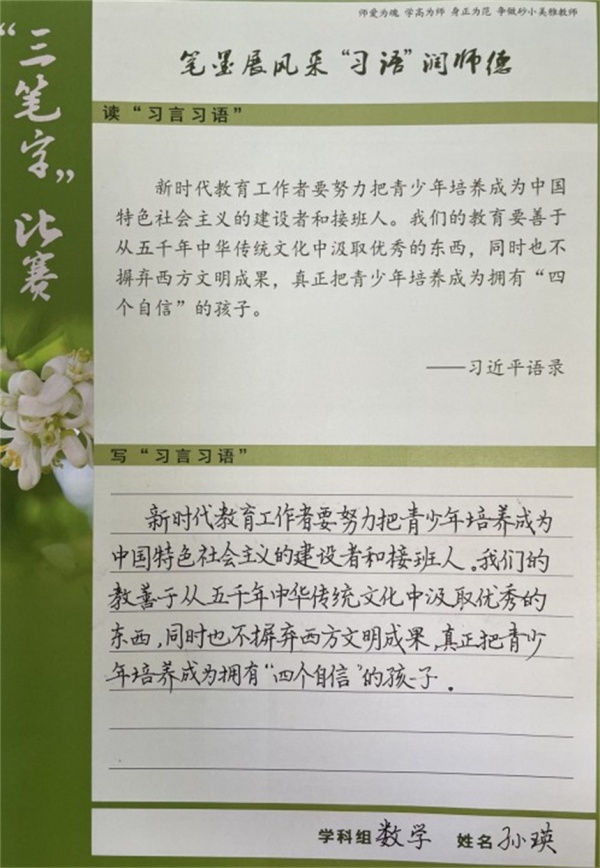 师爱为魂 学高为师 身正为范 争做砂小美雅教师
“三笔字”比赛
笔墨展风采“习语”润师德
读“习言习语”
新时代教育工作者要努力把青少年培养成为中国
特色社会主义的建设者和接班人。我们的教育要善于
从五千年中华传统文化中汲取优秀的东西，同时也不
摒弃西方文明成果，真正把青少年培养成为拥有“四
个自信”的孩子。
——习近平语录
写“习言习语”
新时代教育工作者要努力把青少年培养成为
中国特色社会主义的建设者和接班人。我们的
教善于从五千年中华传统文化中汲取优秀的
东西，同时也不摒弃西方文明成果，真正把青少
年培养成为拥有“四个自信”的孩子．
学科组 数学 姓名 孙瑛